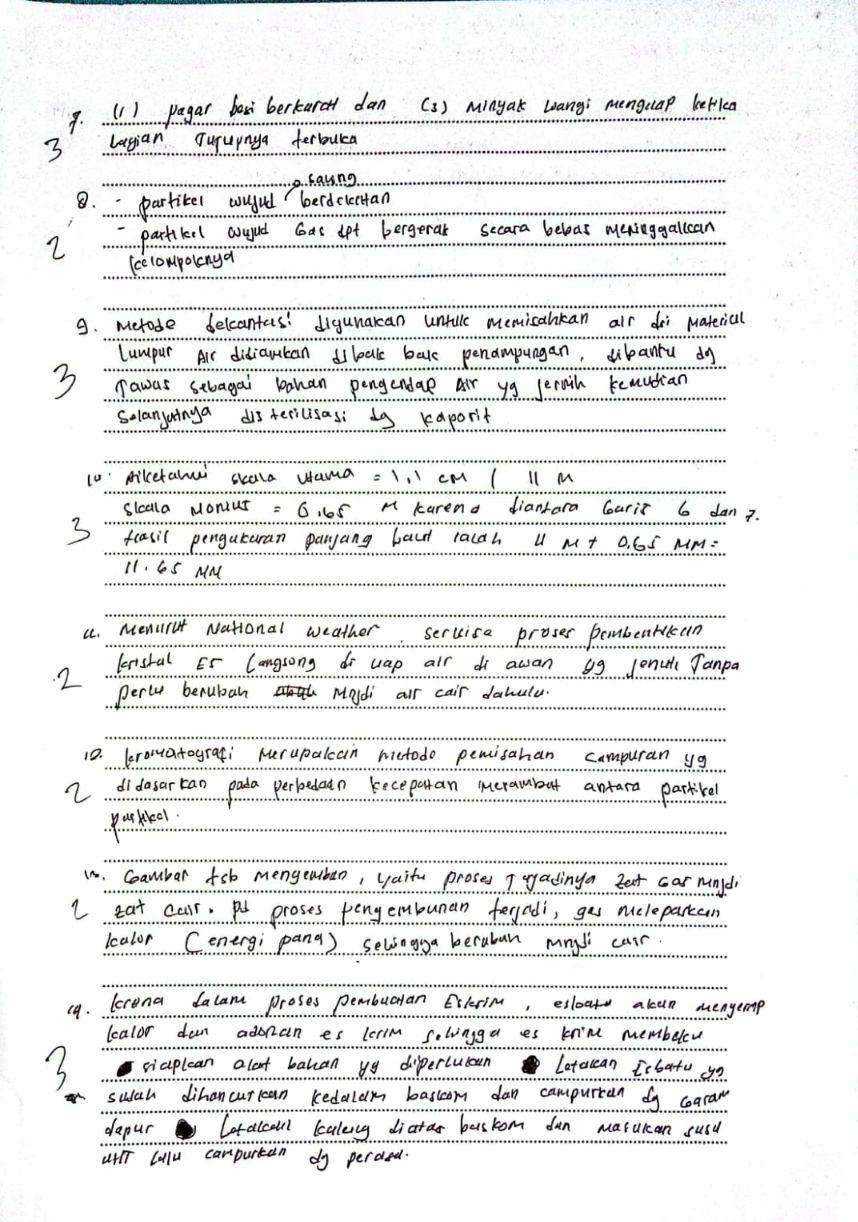 7. (1) pagar besi berkarat dan (3) Minyak wangi menguap ketika
3 bagian Tutupnya terbuka
saling
8. - partikel wujud berdekatan
2 - partikel wujud Gas dpt bergerak secara bebas meninggalkan
kelompoknya
9. Metode dekantasi digunakan untuk memisahkan air dri Material
Lumpur Air didiamkan di bak bak penampungan, dibantu dg
3 Tawas sebagai bahan pengendap Air yg jernih kemudian
Selanjutnya disterilisasi dg kaporit
10. Diketahui skala utama = 1,1 cm / 11 M
Skala Nonius = 0,65 M karena diantara Garis 6 dan 7.
3 Hasil pengukuran panjang baut ialah 11 M + 0,65 MM =
11.65 MM
11. Menurut National Weather servise proses pembentukan
2 kristal Es Langsong dri uap air di awan yg jenuh Tanpa
perlu berubah Mnjdi air cair dahulu.
12. kromatografi Merupakan metode pemisahan campuran yg
2 didasarkan pada perbedaan kecepatan merambat antara partikel
partikel.
13. Gambar tsb mengembun, yaitu proses Terjadinya zat Gas mnjdi
2 zat cair. pd proses pengembunan terjadi, gas melepaskan
kalor (energi panas) sehingga berubah mnjdi cair.
14. krena dalam proses pembuatan Eskrim, esbatu akan menyerap
kalor dari adonan es krim sehingga es krim membeku
3 siapkan alat bahan yg diperlukan Letakan Esbatu yg
sudah dihancurkan kedalam baskom dan campurkan dg Garam
dapur Letakan kaleng diatas baskom dan masukan susu
UHT lalu campurkan dg perasa.